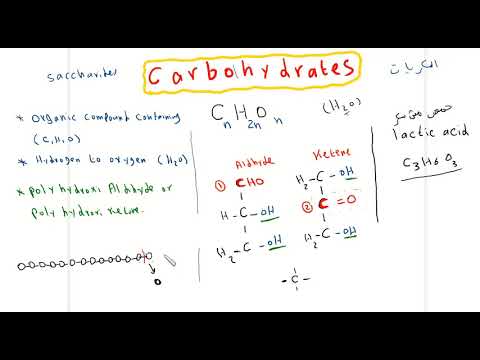 saccharites
Carbohydrates
* organic compound containing
(C,H,O)
* Hydrogen to oxygen (H2O)
* polyhydroxi Aldihyde or
Poly hydroxi Ketene.
CnH2nOn
(H2O)
Aldhyde
① CHO
H-C-OH
H2-C-OH
Ketene
H2-C-OH
② C=O
H2-C-OH
-C-
السكريات
lactic acid
C3H6O3